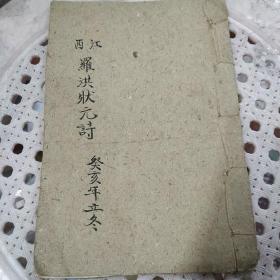 江西
羅洪狀元詩
癸亥年立冬